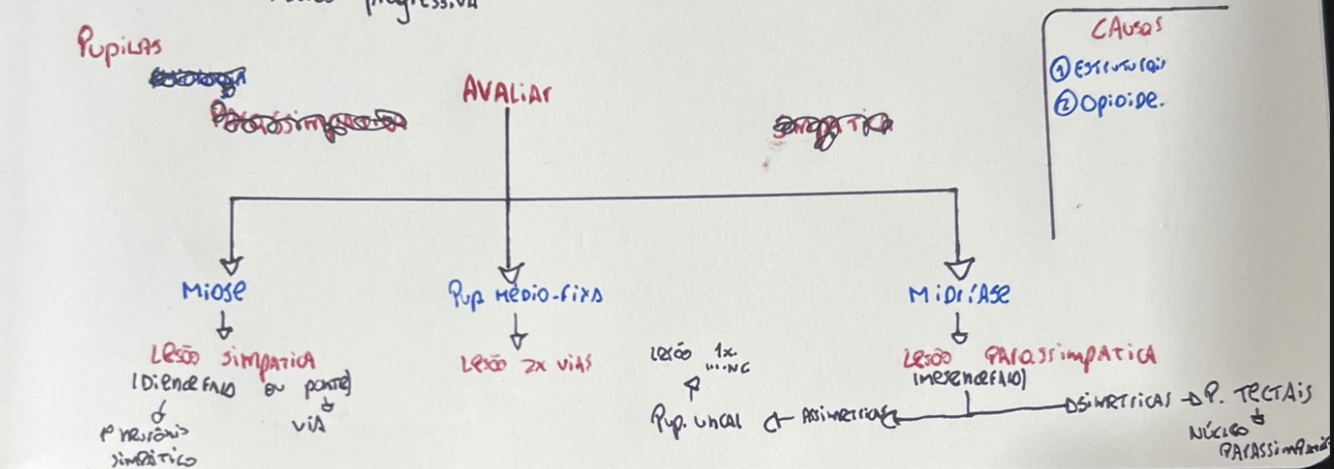 progressiva
Pupilas
AVALiAr
CAusas
① Estruturais
② Opioide.
Miose
Pup Médio-fixa
MiDríAse
Lesão simpatica
(Diencefalo ou ponte)
1º neurônio
simpático
viA
Lesão 2x viAs
Lesão PArassimpAticA
(mesencefalo)
Assimetricas
Pup. uncal
Lesão 1x.
III NC
simetricas
P. TecTAis
Núcleo
PArAssimp